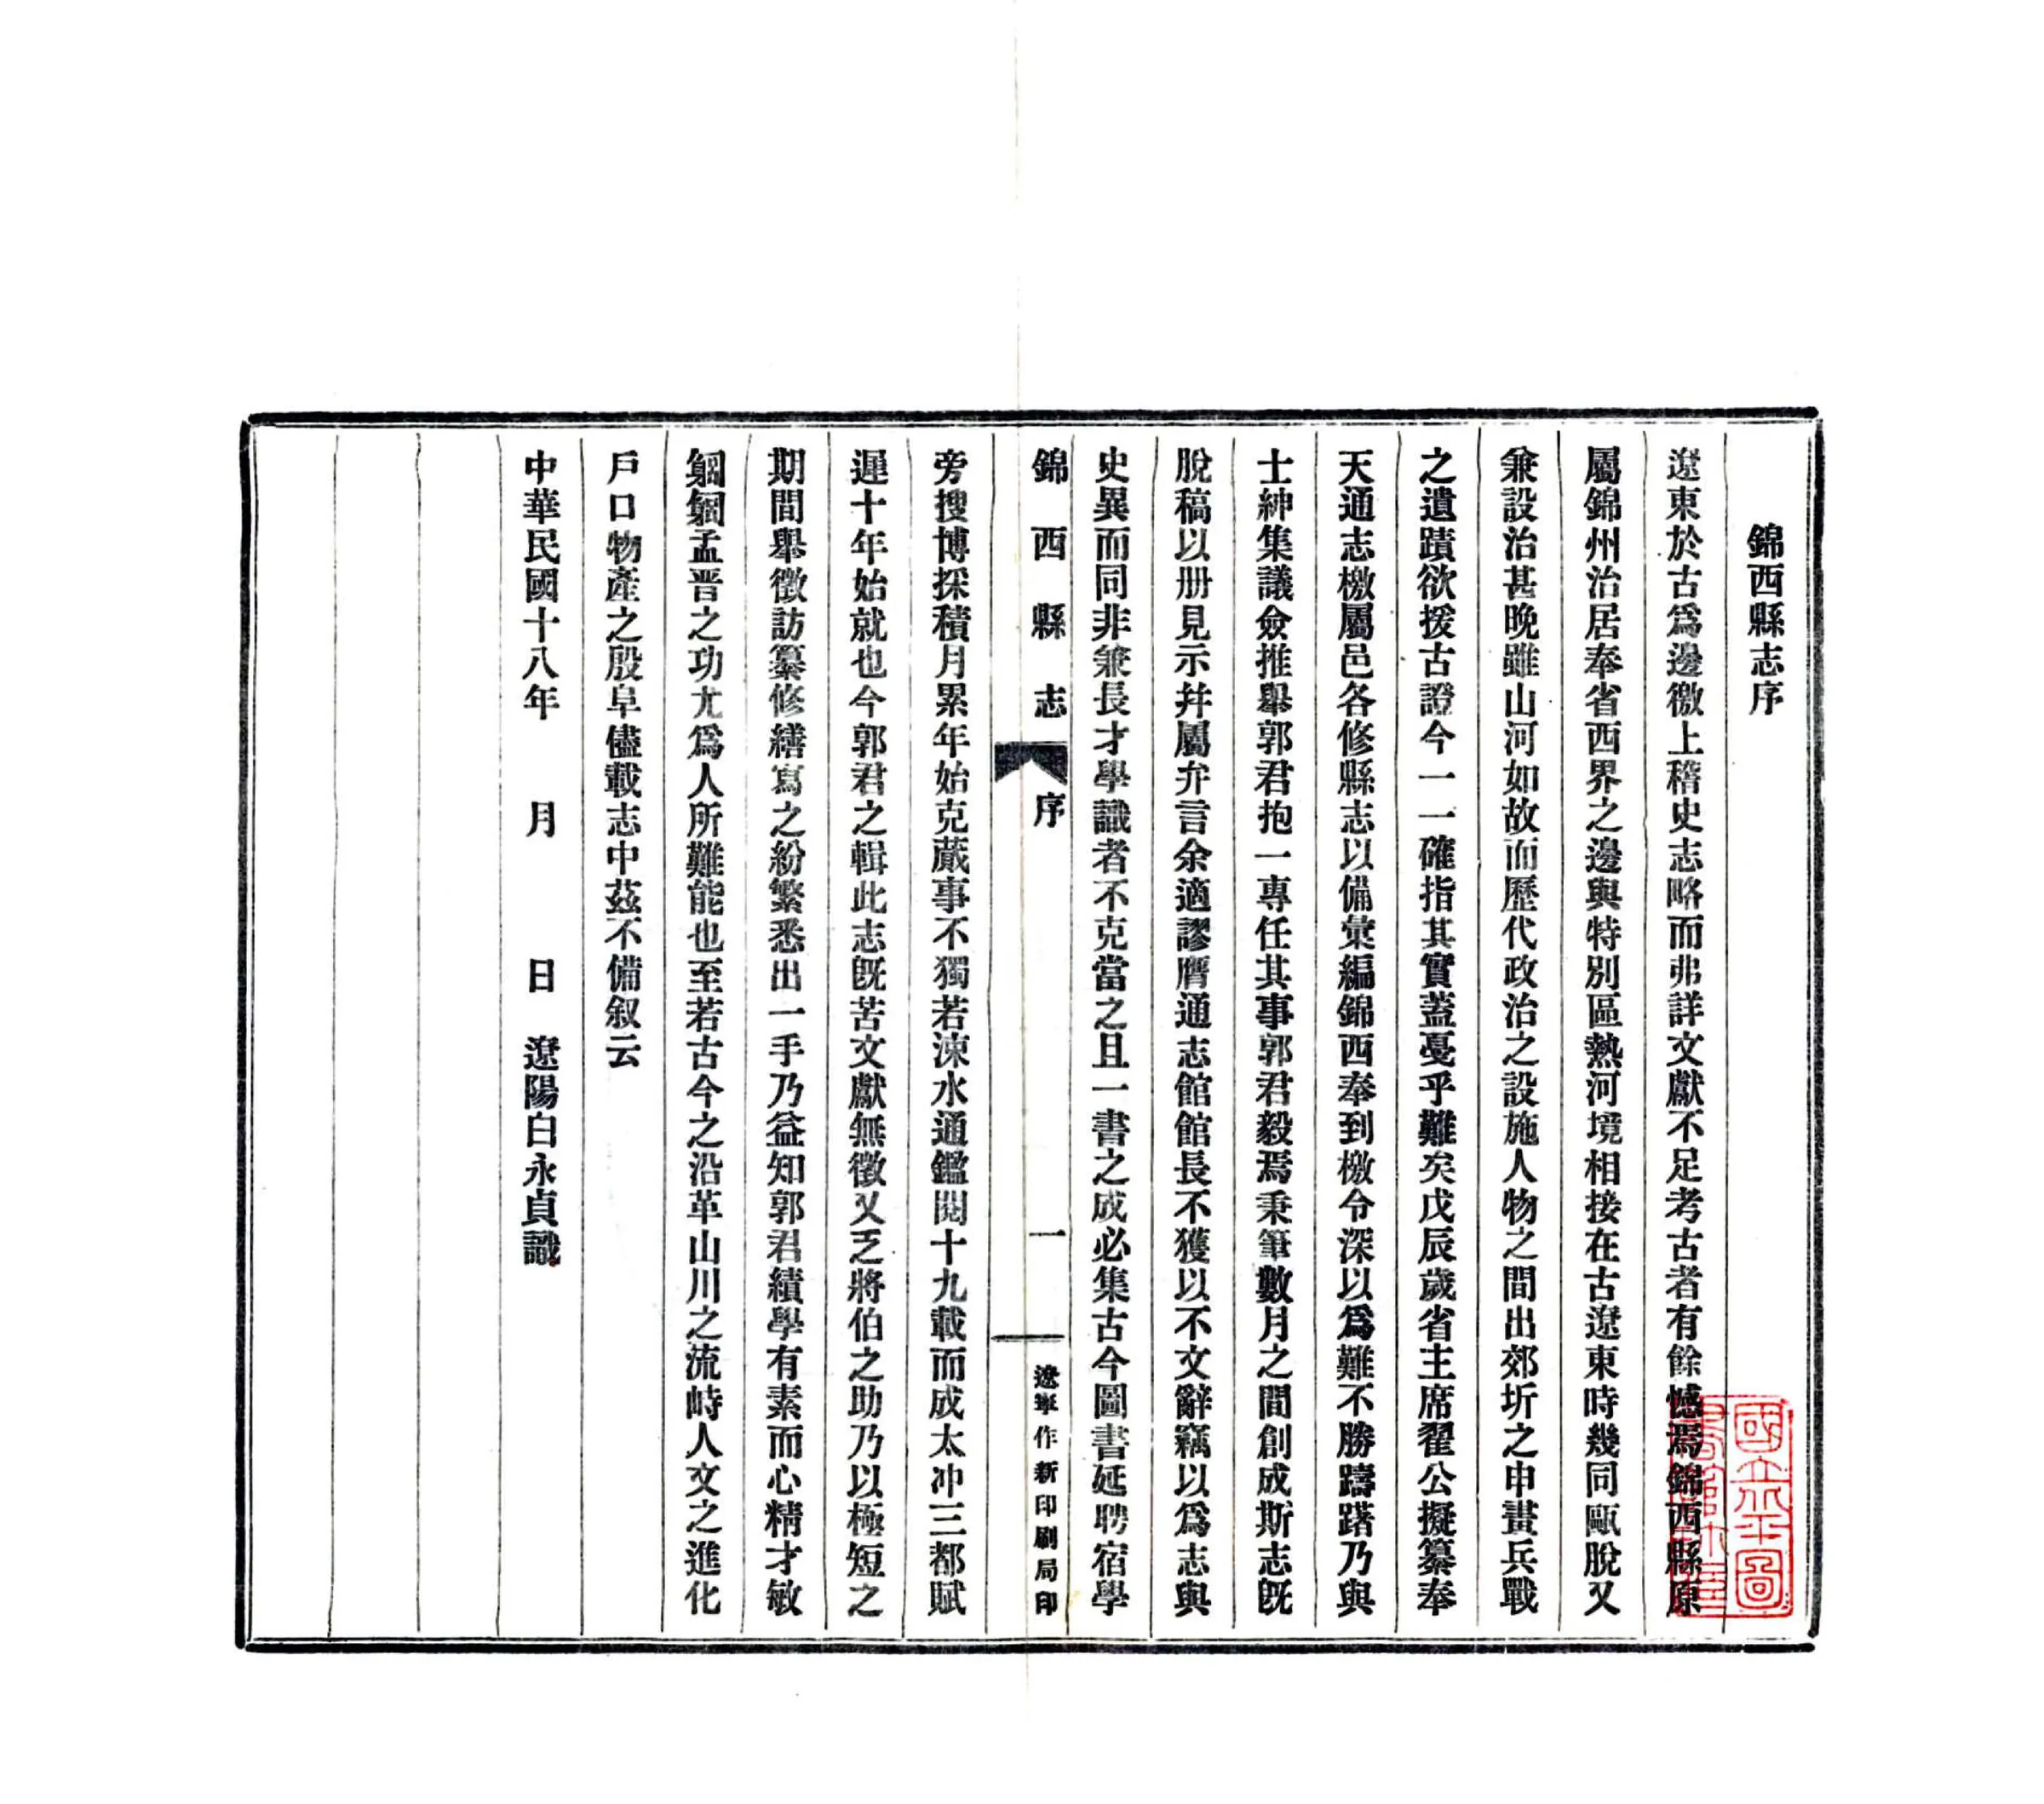 錦西縣志序
遼東於古爲邊徼上稽史志略而弗詳文獻不足考古者有餘憾焉錦西縣原
屬錦州治居奉省西界之邊與特別區熱河境相接在古遼東時幾同甌脫又
兼設治甚晚雖山河如故而歷代政治之設施人物之間出郊圻之申畫兵戰
之遺蹟欲援古證今一一確指其實蓋戞乎難矣戊辰歲省主席翟公擬纂奉
天通志檄屬邑各修縣志以備彙編錦西奉到檄令深以爲難不勝躊躇乃與
士紳集議僉推舉郭君抱一專任其事郭君毅焉秉筆數月之間創成斯志旣
脫稿以册見示幷屬弁言余適謬膺通志館館長不獲以不文辭竊以爲志與
史異而同非兼長才學識者不克當之且一書之成必集古今圖書延聘宿學
錦西縣志
序
一
遼寧作新印刷局印
旁搜博採積月累年始克蕆事不獨若涑水通鑑閱十九載而成太冲三都賦
遲十年始就也今郭君之輯此志旣苦文獻無徵又乏將伯之助乃以極短之
期間舉徵訪纂修繕寫之紛繁悉出一手乃益知郭君績學有素而心精才敏
孟晋之功尤爲人所難能也至若古今之沿革山川之流峙人文之進化
戶口物產之殷阜儘載志中茲不備叙云
中華民國十八年 月 日 遼陽白永貞識
國立北平圖
書館收藏